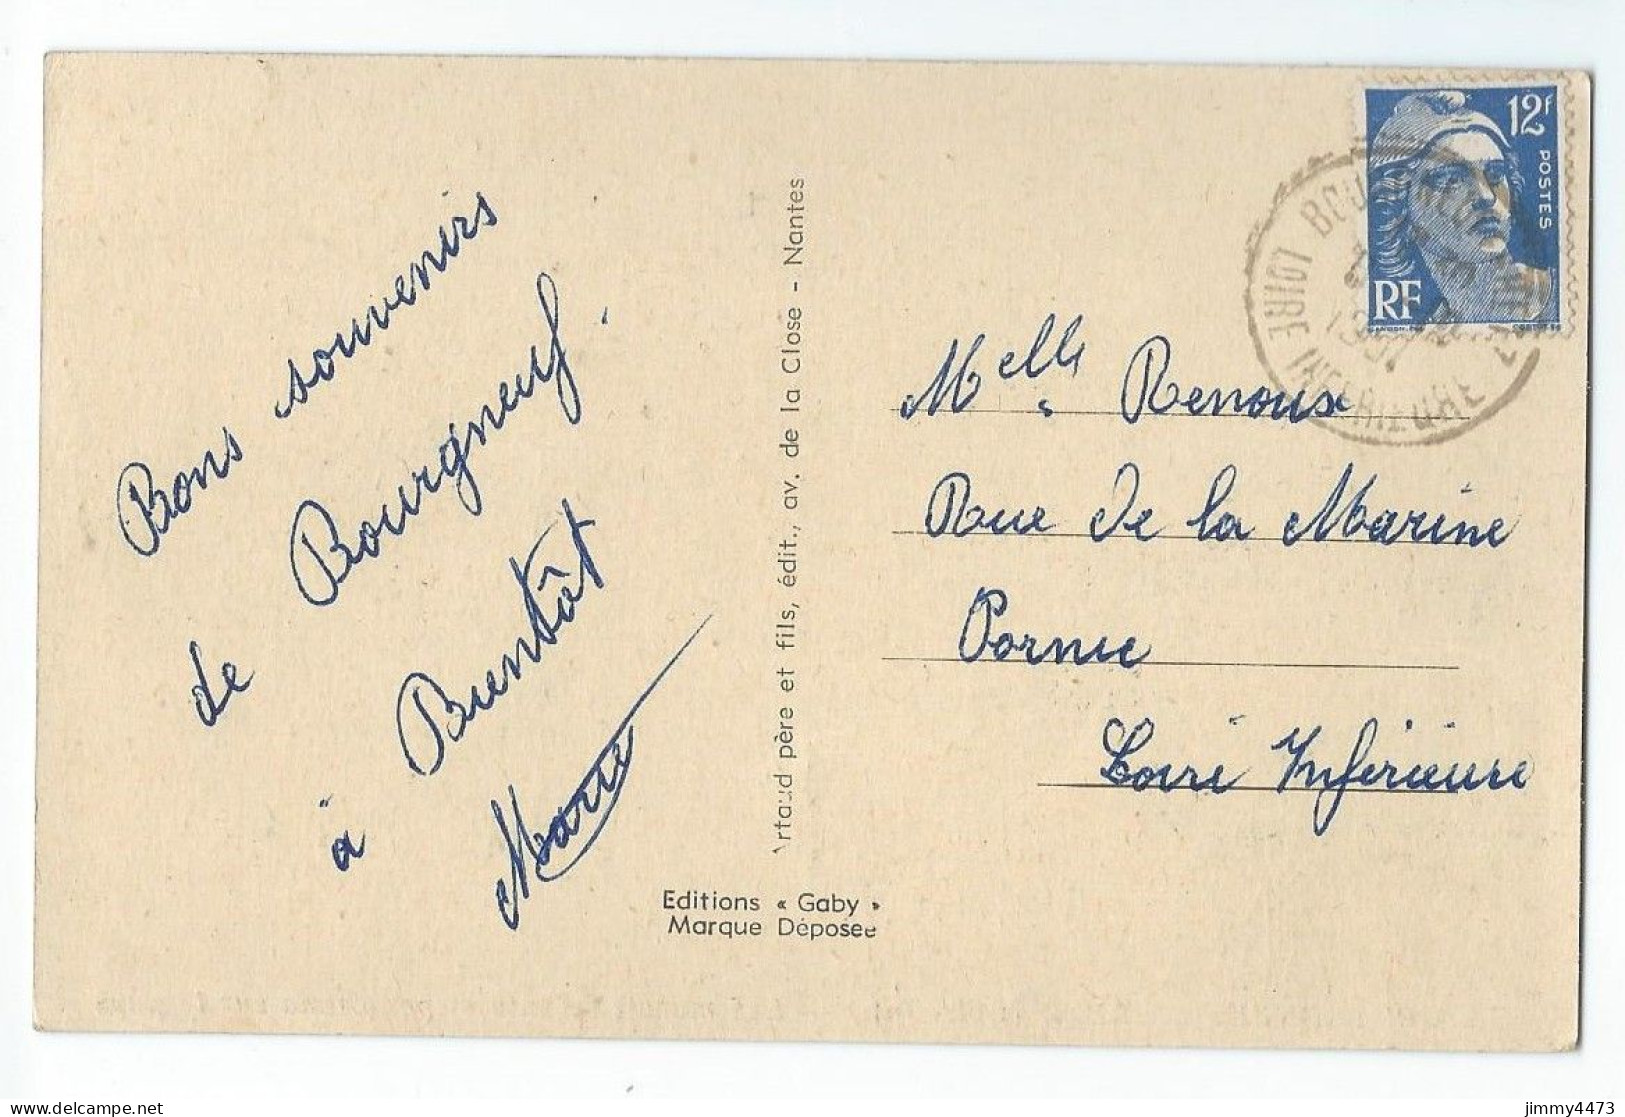 Bons souvenirs
de Bourgneuf.
à Bientôt
Marie
Artaud père et fils, édit., av. de la Close - Nantes
Editions « Gaby »
Marque Déposée
12F
POSTES
RF
LOIRE INFERIEURE
1951
Melle Renoux
Rue de la Marine
Pornic
Loire Inférieure
delcampe.net
jimmy4473